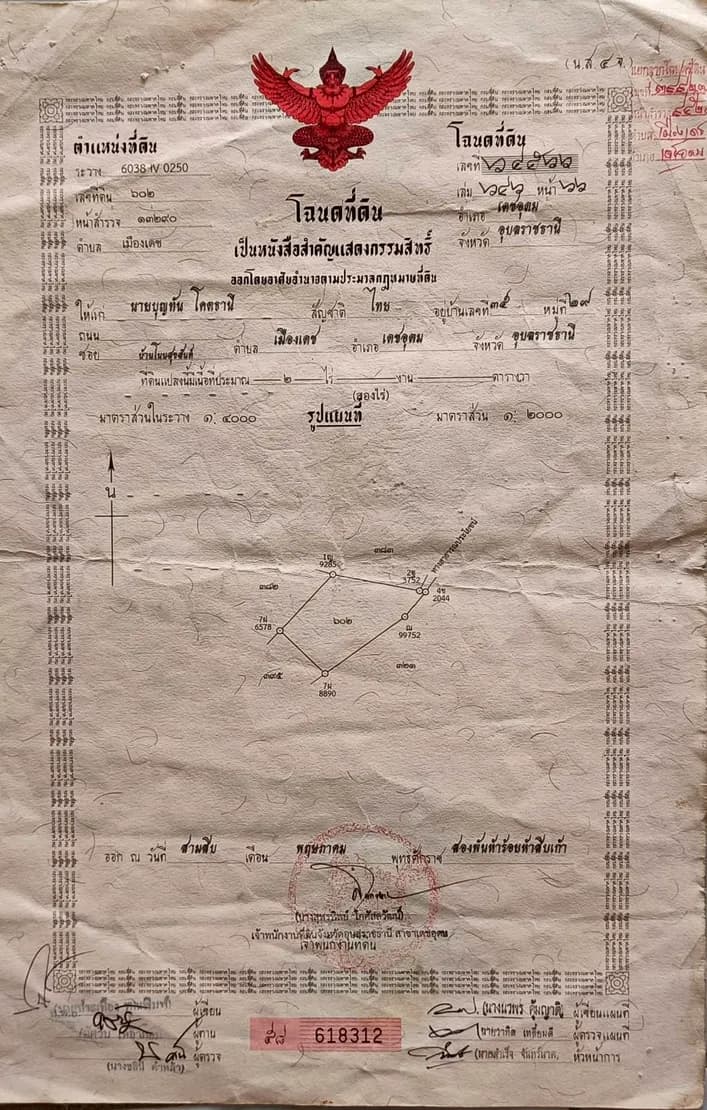 (น.ส ๔ จ
ตำแหน่งที่ดิน
ระวาง 6038 IV 0250
เลขที่ดิน ๖๐๒
หน้าสำรวจ ๑๓๒๙๐
ตำบล เมืองเดช
โฉนดที่ดิน
เลขที่
เล่ม ๖๔๖ หน้า ๖๖
อำเภอ เดชอุดม
จังหวัด อุบลราชธานี
โฉนดที่ดิน
เป็นหนังสือสำคัญแสดงกรรมสิทธิ์
ออกโดยอาศัยอำนาจตามประมวลกฎหมายที่ดิน
ให้แก่ นายบุญทัน โคตธานี สัญชาติ ไทย อยู่บ้านเลขที่ ๓๕ หมู่ที่ ๒๙
ถนน ตำบล เมืองเดช อำเภอ เดชอุดม จังหวัด อุบลราชธานี
ซอย บ้านโนนสุขสันต์
ที่ดินแปลงนี้มีเนื้อที่ประมาณ ๒ ไร่ งาน ตารางวา
(สองไร่)
มาตราส่วนในระวาง ๑:๔๐๐๐ รูปแผนที่ มาตราส่วน ๑:๒๐๐๐
น
ทางสาธารณประโยชน์
๓๘๓
1ญ
9285
2ช
3752
4ช
2044
๓๘๒
7ผ
6578
๖๐๒
ฌ
99752
๓๒๑
๓๙๕
7ผ
8890
ออก ณ วันที่ สามสิบ เดือน พฤษภาคม พุทธศักราช สองพันห้าร้อยห้าสิบเก้า
เจ้าพนักงานที่ดินจังหวัดอุบลราชธานี สาขาเดชอุดม
เจ้าพนักงานที่ดิน
ผู้เขียน
ผู้ทาน
ผู้ตรวจ
ผู้เขียนแผนที่
ผู้ตรวจแผนที่
หัวหน้าการ
๕๘ 618312